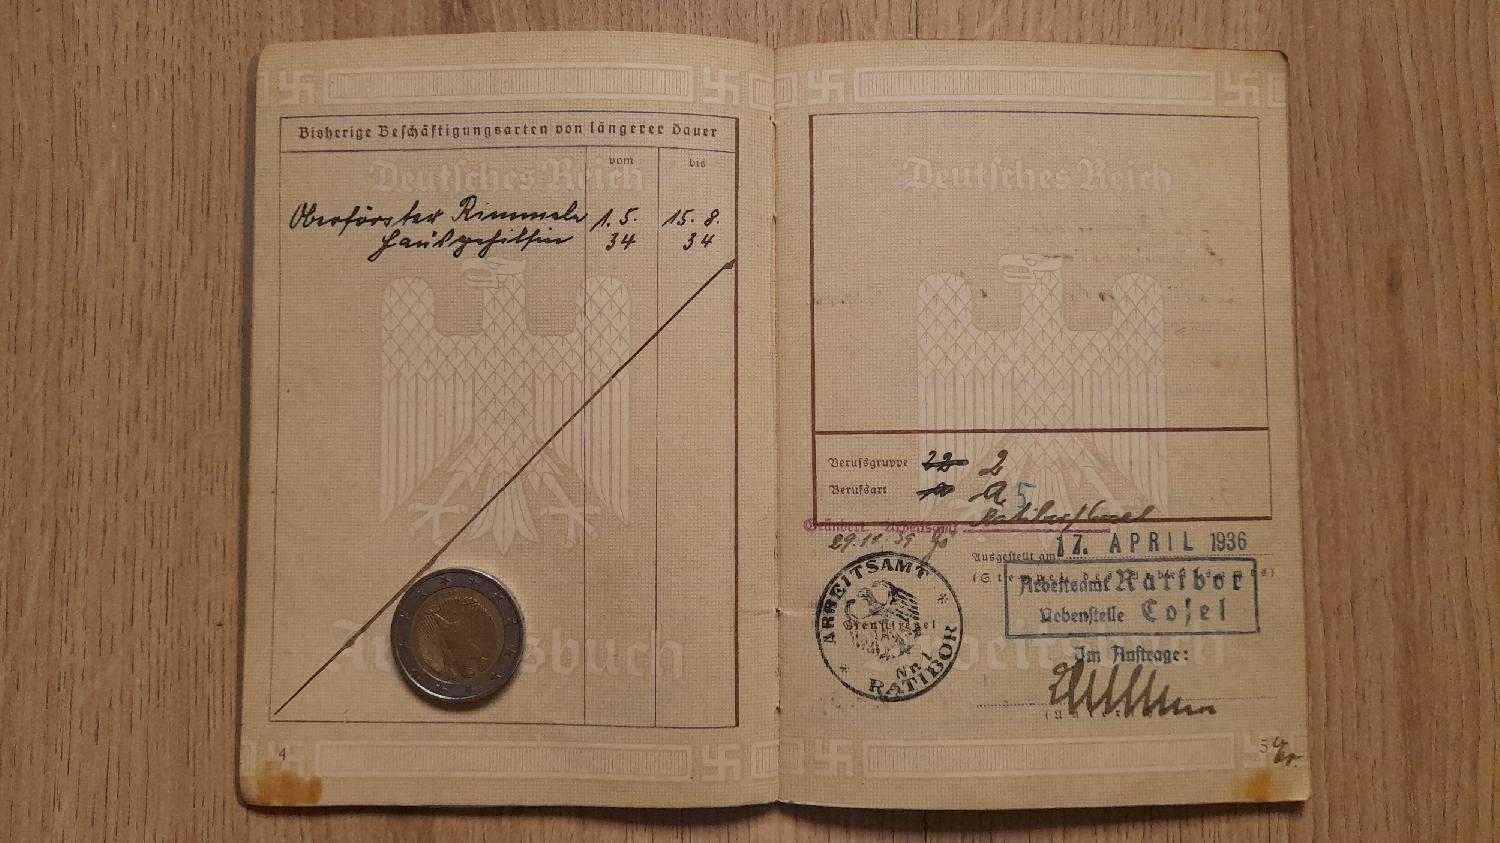 Bisherige Beschäftigungsarten von längerer Dauer
vom bis
Deutsches Reich
Oberförster Rimmele 1. 5. 15. 8.
Hausgehilfin 34 34
Arbeitsbuch
4
Deutsches Reich
Berufsgruppe 22 2
Berufsart a a 5
Geändert, Arbeitsamt Ratibor/Cosel
29.12.39
Ausgestellt am 17. APRIL 1936
Arbeitsamt Ratibor
Nebenstelle Cosel
Im Auftrage:
ARBEITSAMT
Dienstsiegel
Nr. 1
RATIBOR
5